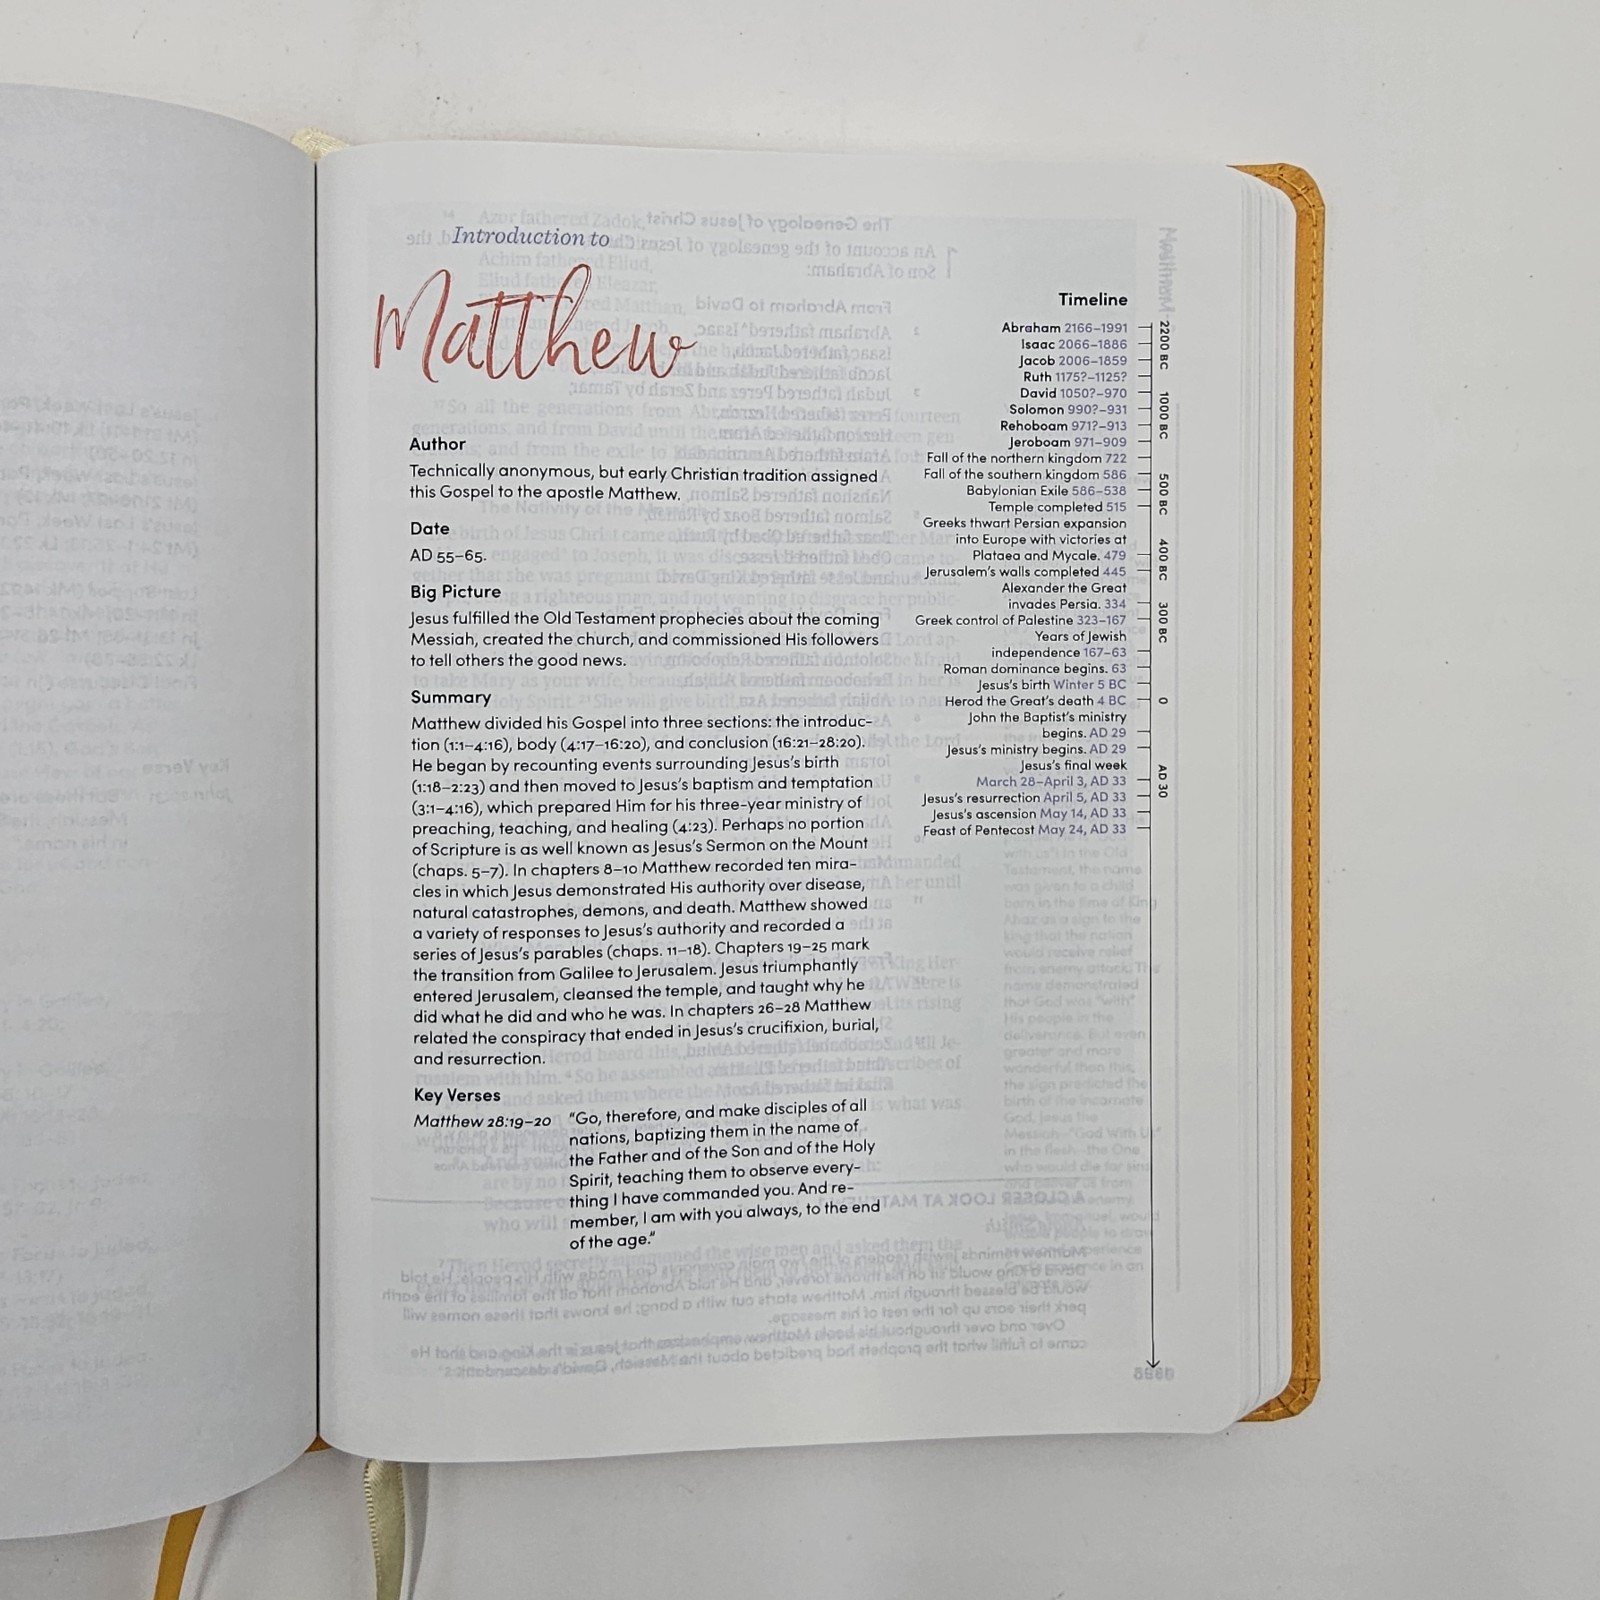 Introduction to
Matthew
Author
Technically anonymous, but early Christian tradition assigned
this Gospel to the apostle Matthew.
Date
AD 55–65.
Big Picture
Jesus fulfilled the Old Testament prophecies about the coming
Messiah, created the church, and commissioned His followers
to tell others the good news.
Summary
Matthew divided his Gospel into three sections: the introduc-
tion (1:1–4:16), body (4:17–16:20), and conclusion (16:21–28:20).
He began by recounting events surrounding Jesus's birth
(1:18–2:23) and then moved to Jesus's baptism and temptation
(3:1–4:16), which prepared Him for his three-year ministry of
preaching, teaching, and healing (4:23). Perhaps no portion
of Scripture is as well known as Jesus's Sermon on the Mount
(chaps. 5–7). In chapters 8–10 Matthew recorded ten mira-
cles in which Jesus demonstrated His authority over disease,
natural catastrophes, demons, and death. Matthew showed
a variety of responses to Jesus's authority and recorded a
series of Jesus's parables (chaps. 11–18). Chapters 19–25 mark
the transition from Galilee to Jerusalem. Jesus triumphantly
entered Jerusalem, cleansed the temple, and taught why he
did what he did and who he was. In chapters 26–28 Matthew
related the conspiracy that ended in Jesus's crucifixion, burial,
and resurrection.
Key Verses
Matthew 28:19–20 "Go, therefore, and make disciples of all
nations, baptizing them in the name of
the Father and of the Son and of the Holy
Spirit, teaching them to observe every-
thing I have commanded you. And re-
member, I am with you always, to the end
of the age."
Timeline
Abraham 2166–1991
Isaac 2066–1886
Jacob 2006–1859
Ruth 1175?–1125?
David 1050?–970
Solomon 990?–931
Rehoboam 971?–913
Jeroboam 971–909
Fall of the northern kingdom 722
Fall of the southern kingdom 586
Babylonian Exile 586–538
Temple completed 515
Greeks thwart Persian expansion
into Europe with victories at
Plataea and Mycale. 479
Jerusalem's walls completed 445
Alexander the Great
invades Persia. 334
Greek control of Palestine 323–167
Years of Jewish
independence 167–63
Roman dominance begins. 63
Jesus's birth Winter 5 BC
Herod the Great's death 4 BC
John the Baptist's ministry
begins. AD 29
Jesus's ministry begins. AD 29
Jesus's final week
March 28–April 3, AD 33
Jesus's resurrection April 5, AD 33
Jesus's ascension May 14, AD 33
Feast of Pentecost May 24, AD 33
2200 BC
1000 BC
500 BC
400 BC
300 BC
0
AD 30